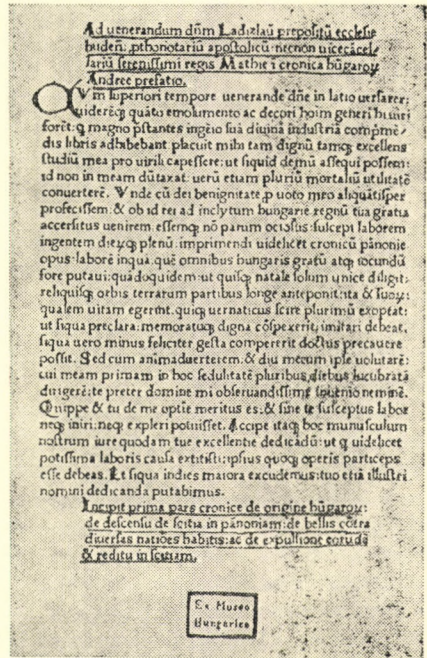 Ad uenerandum dn̄m Ladizlaū prepositū ecclesie
budeñ. ꝓthonotariū apostolicū: necnon uicecācel⸗
lariū serenissimi regis Mathie ī cronica hūgaroꝝ
Andree prefatio.
QVm superiori tempore uenerande dn̄e in latio uersarer:
uideréqꝫ quātū emolumento ac decori hoīm generi hi uiri
foret: ꝗ magno p̄stantes ingēio suā diuinā industriā compmē⸗
dis libris adhibebant placuit mihi tam dignū tamqꝫ excellens
studiū mea pro uirili capessere: ut siquid demū assequi possem:
id non in meam dūtaxat: uerū etiam pluriū mortaliū utilitatē
conuerterē. Vnde cū dei benignitate ꝓ uoto mro aliquātisper
profecissem: & ob id rei ad inclytum bungarie regnū tua gratia
accersitus uenirem. essemqꝫ nō parum ociosus: suscepi laborem
ingentem dieꝝqꝫ plenū. imprimendi uidelicet cronicū pānonie
opus: laborē inqua. quē omnibus bungaris gratū atqꝫ iocundū
fore putaui: quādoquidem: ut quisqꝫ natale solum unice diligit:
reliquisqꝫ orbis terrarum partibus longe anteponit: ita & suoꝝ:
qualem uitam egerint. quiqꝫ uernaticus scire plurimū exoptat:
ut siqua preclara: memoratuqꝫ digna cōspexerit: imitari debeat.
siqua uero minus feliciter gesta compererit doctus precauere
possit. Sed cum animaduerterem. & diu mecum ipse uolutarē:
cui meam primam in hoc sedulitatē pluribus diebus lucubratā
dirigerē: te preter domine mi obseruandissime inuenio neminē.
Quippe & tu de me optīe meritus es: & sine te susceptus labor
neqꝫ iniri: neqꝫ expleri potuisset. Accipe itaqꝫ hoc munusculum
nostrum iure quodam tue excellentie dedicādū: ut ꝗ uidelicet
potissima laboris causa extitisti: ipsius quoqꝫ operis particeps
esse debeas. Et siqua indies maiora excudemus: tuo etiā illustri
nomini dedicanda putabimus.
Incipit prima pars cronice de origine hūgaroꝝ:
de descensu de scitia in pānoniam: de bellis cōtra
diuersas natiōes habitis: ac de expulsione eorūdē
& reditu in scitiam.
Ex Museo
Hungarico